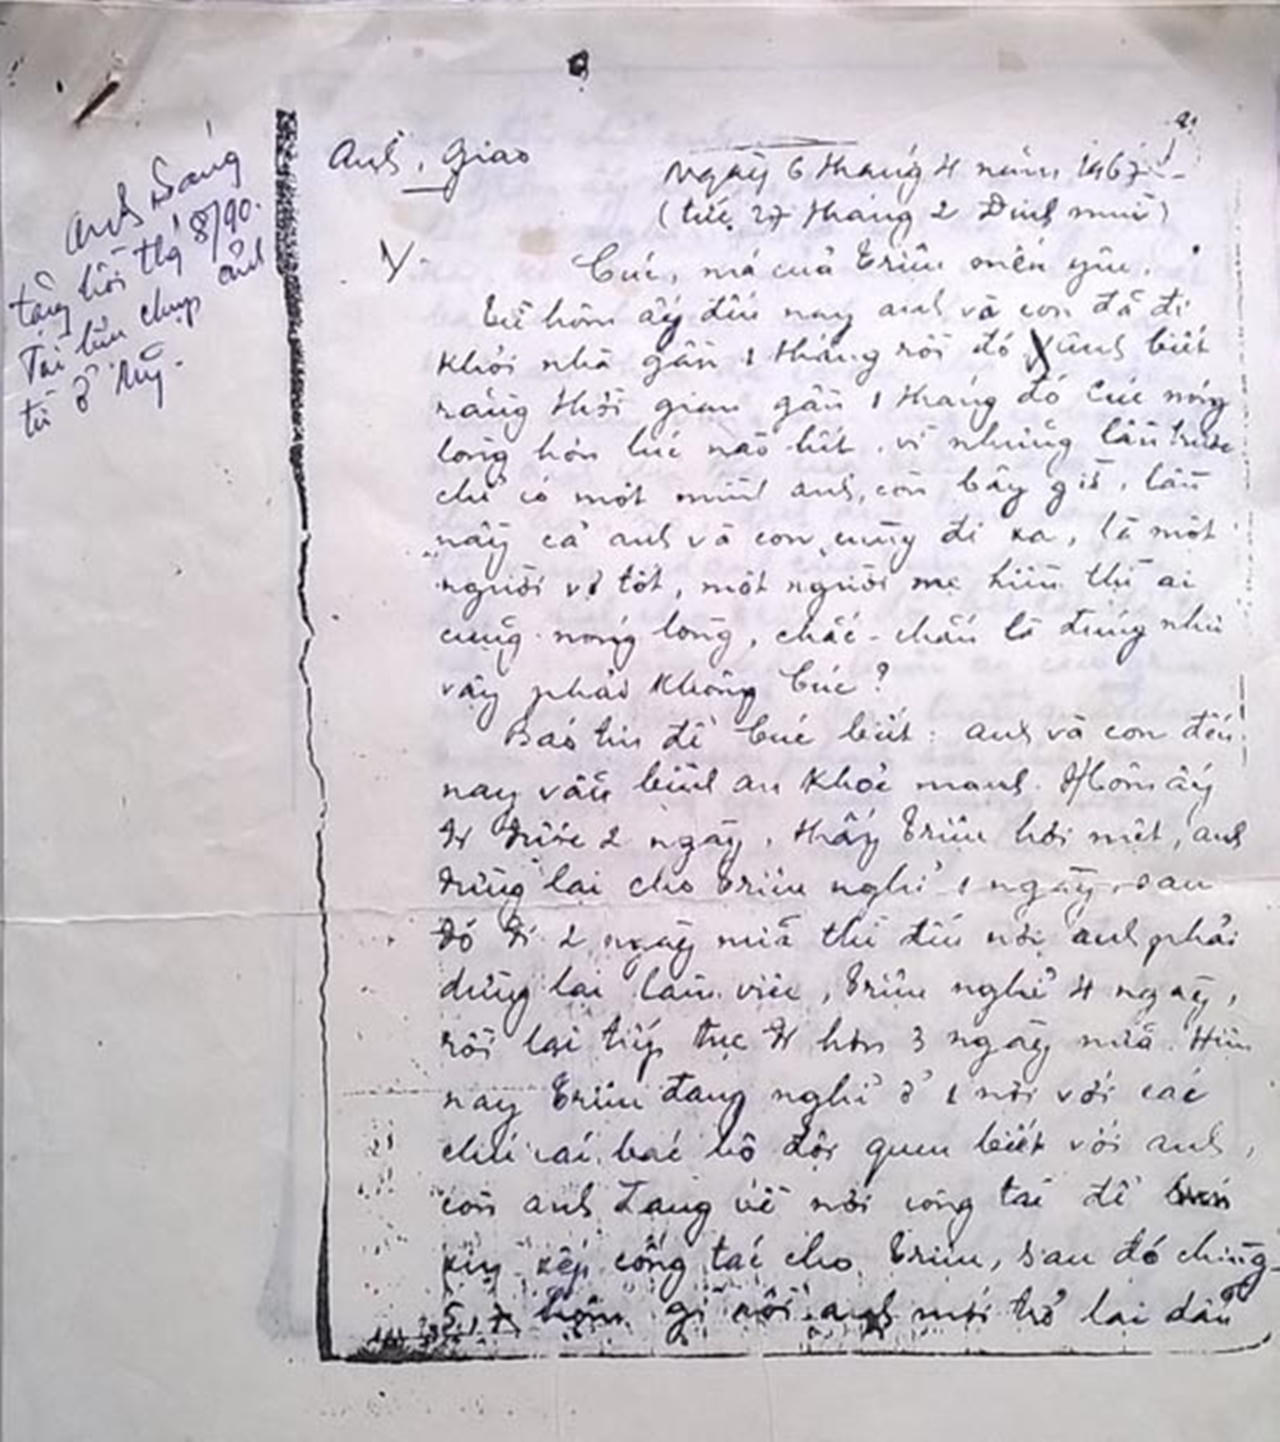 Anh Giao
Anh Sáng
tặng hồi thg 8/90.
Tài liệu chụp ảnh
từ ở Mỹ.
Ngày 6 tháng 4 năm 1967
(tức 27 tháng 2 Đinh mùi)
Cúc, má của Triều mến yêu.
Từ hôm ấy đến nay anh và con đã đi
khỏi nhà gần 1 tháng rồi đó, anh biết
rằng thời gian gần 1 tháng đó Cúc nóng
lòng hơn lúc nào hết, vì những lần trước
chỉ có một mình anh, còn bây giờ, lần
nầy cả anh và con cùng đi xa, là một
người vợ tốt, một người mẹ hiền thì ai
cũng nóng lòng, chắc-chắn là đúng như
vậy phải không Cúc?
Báo tin để Cúc biết: anh và con đến
nay vẫn bình an khỏe mạnh. Hôm ấy
đi được 2 ngày, thấy Triều hơi mệt, anh
dừng lại cho Triều nghỉ 1 ngày, sau
đó đi 2 ngày nữa thì đến nơi anh phải
dừng lại làm việc, Triều nghỉ 4 ngày,
rồi lại tiếp tục đi hơn 3 ngày nữa. Hiện
nay Triều đang nghỉ ở 1 nơi với các
chú các bác bộ đội quen biết với anh,
còn anh đang về nơi công tác để
xin xếp công tác cho Triều, sau đó chừng
5, 7 hôm gì rồi anh mới trở lại dẫn